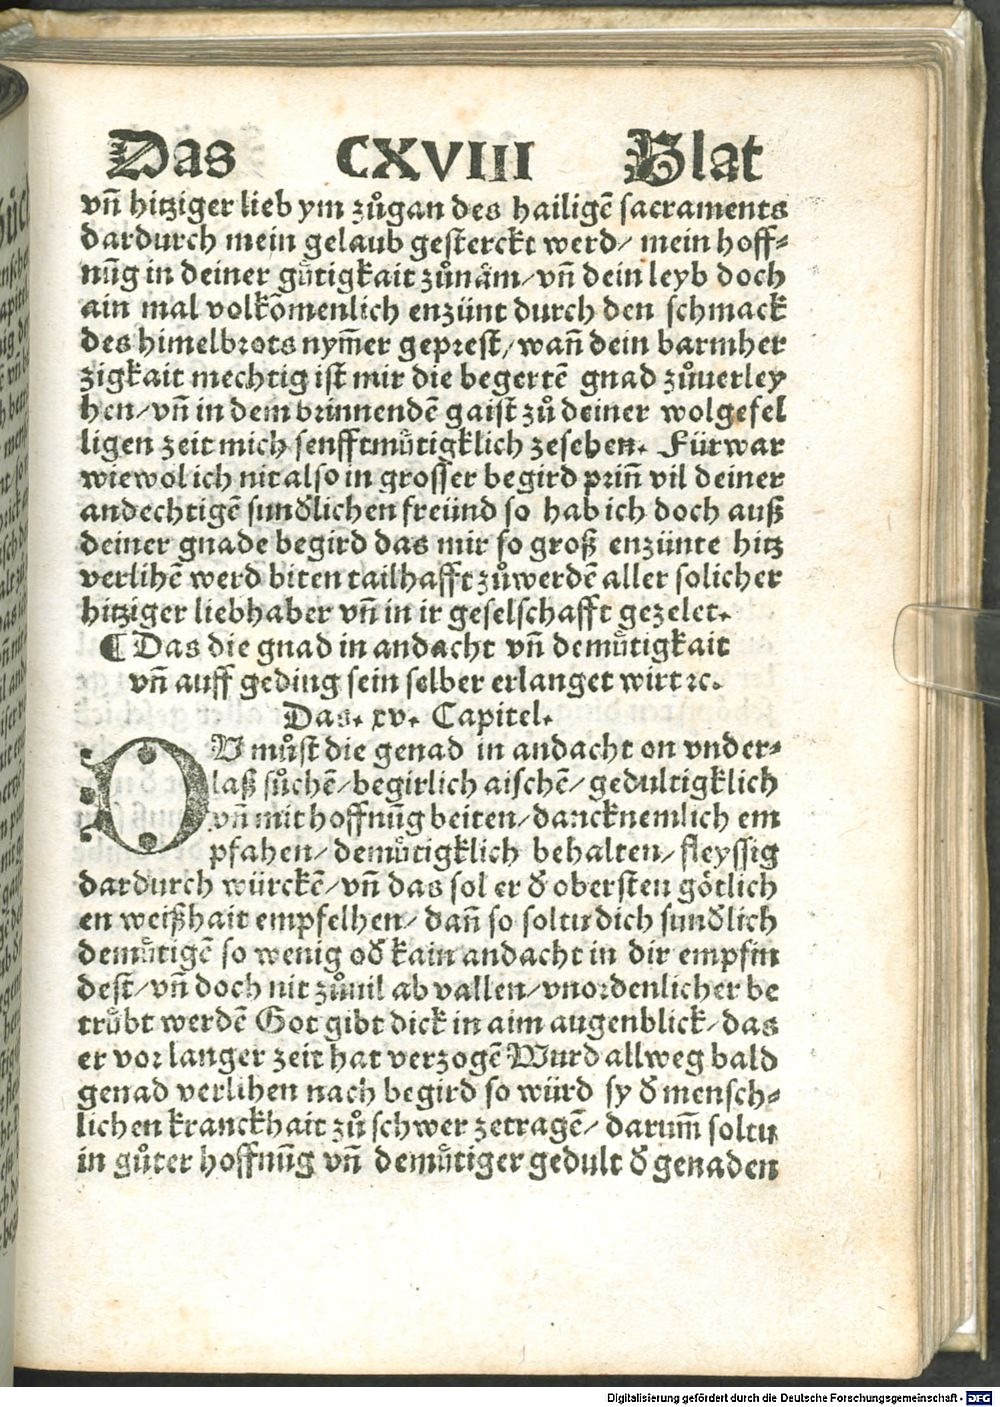 Das CXVIII Blat
vñ hitziger lieb ym zůgan des hailigẽ sacraments
dardurch mein gelaub gesterckt werd/ mein hoff⸗
nũg in deiner gůtigkait zůnäm/vñ dein leyb doch
ain mal volkõmenlich enzünt durch den schmack
des himelbrots nym̃er geprest/wañ dein barmher
zigkait mechtig ist mir die begertẽ gnad zůuerley
hen/vñ in dem brinnendẽ gaist zů deiner wolgefel
ligen zeit mich senfftmůtigklich zesehen. Fürwar
wiewol ich nit also in grosser begird priñ vil deiner
andechtigẽ sunđlichen freünd so hab ich doch auß
deiner gnade begird das mir so groß enzünte hitz
verlihẽ werd biten tailhafft zůwerdẽ aller solicher
hitziger liebhaber vñ in ir geselschafft gezelet.
¶ Das die gnad in andacht vñ demůtigkait
vñ auff geding sein selber erlanget wirt ⁊c.
Das. xv. Capitel.
DU můst die genad in andacht on vnder⸗
laß sůchẽ/begirlich aischẽ/gedultigklich
vñ mit hoffnũg beiten/dancknemlich em
pfahen/demůtigklich behalten/fleyssig
dardurch würckẽ/vñ das sol er đ obersten götlich
en weißhait empfelhen/dañ so soltu dich sunđlich
demůtigẽ so wenig ođ kain andacht in dir empfin
dest/vñ doch nit zůuil ab vallen/vnordenlicher be
trůbt werdẽ Got gibt dick in aim augenblick/das
er vor langer zeit hat verzogẽ Wurd allweg bald
genad verlihen nach begird so würd sy đ mensch⸗
lichen kranckhait zů schwer zetragẽ/darum̃ soltu
in gůter hoffnũg vñ demůtiger gedult đ genaden
Digitalisierung gefördert durch die Deutsche Forschungsgemeinschaft - DFG